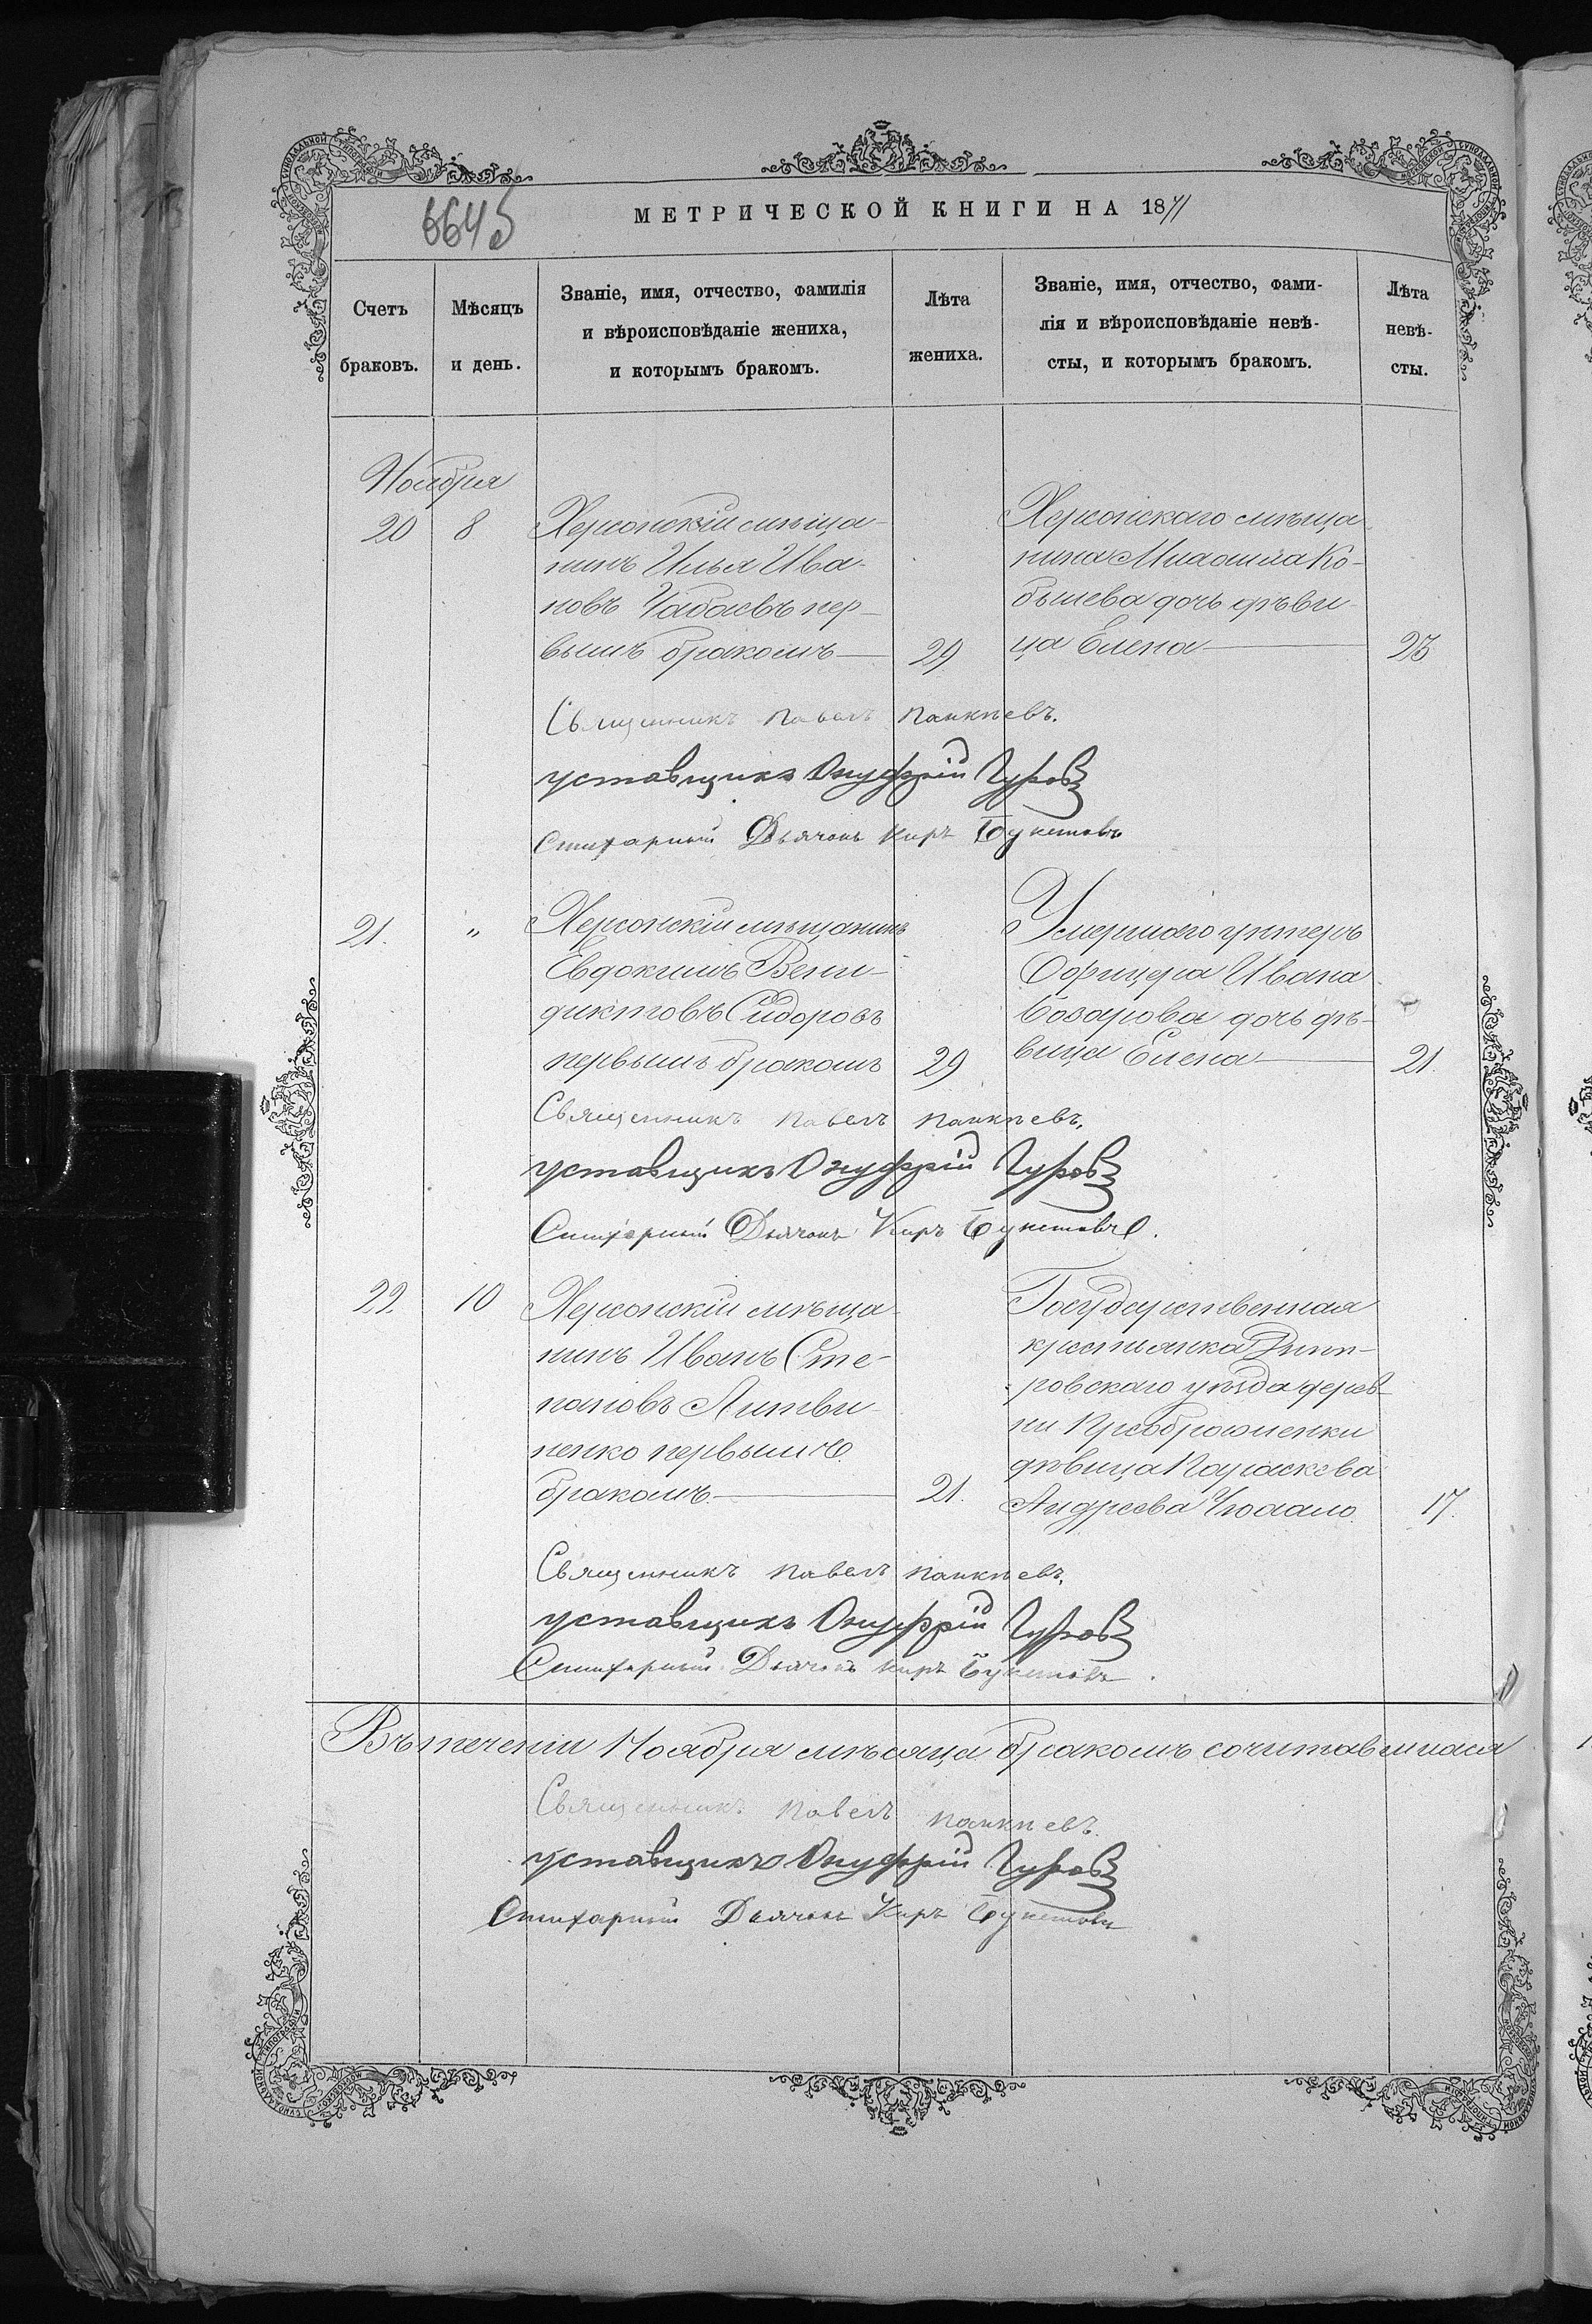 664
МЕТРИЧЕСКОЙ КНИГИ НА 1871
Счетъ браковъ.
Мѣсяцъ и день.
Званіе, имя, отчество, фамилія
и вѣроисповѣданіе жениха,
и которымъ бракомъ.
Лѣта жениха.
Званіе, имя, отчество, фами-
лія и вѣроисповѣданіе невѣ-
сты, и которымъ бракомъ.
Лѣта невѣ-
сты.
Ноября
20 8
Херсонскій мѣща-
нинъ Илья Ива-
новъ Чабаевъ пер-
вымъ бракомъ 29
Херсонскаго мѣща
нина Михаила Ко-
былева дочь дѣви
ца Елена 23
Священникъ Павелъ
уставщикъ Онуфрій Гуровъ
Стихарный Дьячокъ Киръ Букетовъ
21. "
Херсонскій мѣщанинъ
Евдокимъ Вени-
диктовъ Сидоровъ
первымъ бракомъ 29
Умершаго унтеръ
Офицера Ивана
Базарова дочь дѣ-
вица Елена 21.
Священникъ Павелъ
уставщикъ Онуфрій Гуровъ
Стихарный Дьячокъ Киръ Букетовъ.
22. 10
Херсонскій мѣща-
нинъ Иванъ Сте-
пановъ Литви-
ненко первымъ
бракомъ 21.
Государственная
крестьянка Днѣп-
ровскаго уѣзда дерев-
ни Преображенки
дѣвица Параскева
Андреева 17.
Священникъ Павелъ
уставщикъ Онуфрій Гуровъ
Стихарный Дьячокъ Киръ Букетовъ.
Въ теченіи Ноября мѣсяца бракомъ сочитавшихся
Священникъ Павелъ
уставщикъ Онуфрій Гуровъ
Стихарный Дьячокъ Киръ Букетовъ